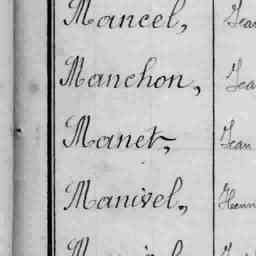 Mancel, Jean
Manchon, Jea
Manet, Jean
Manivel, Henn